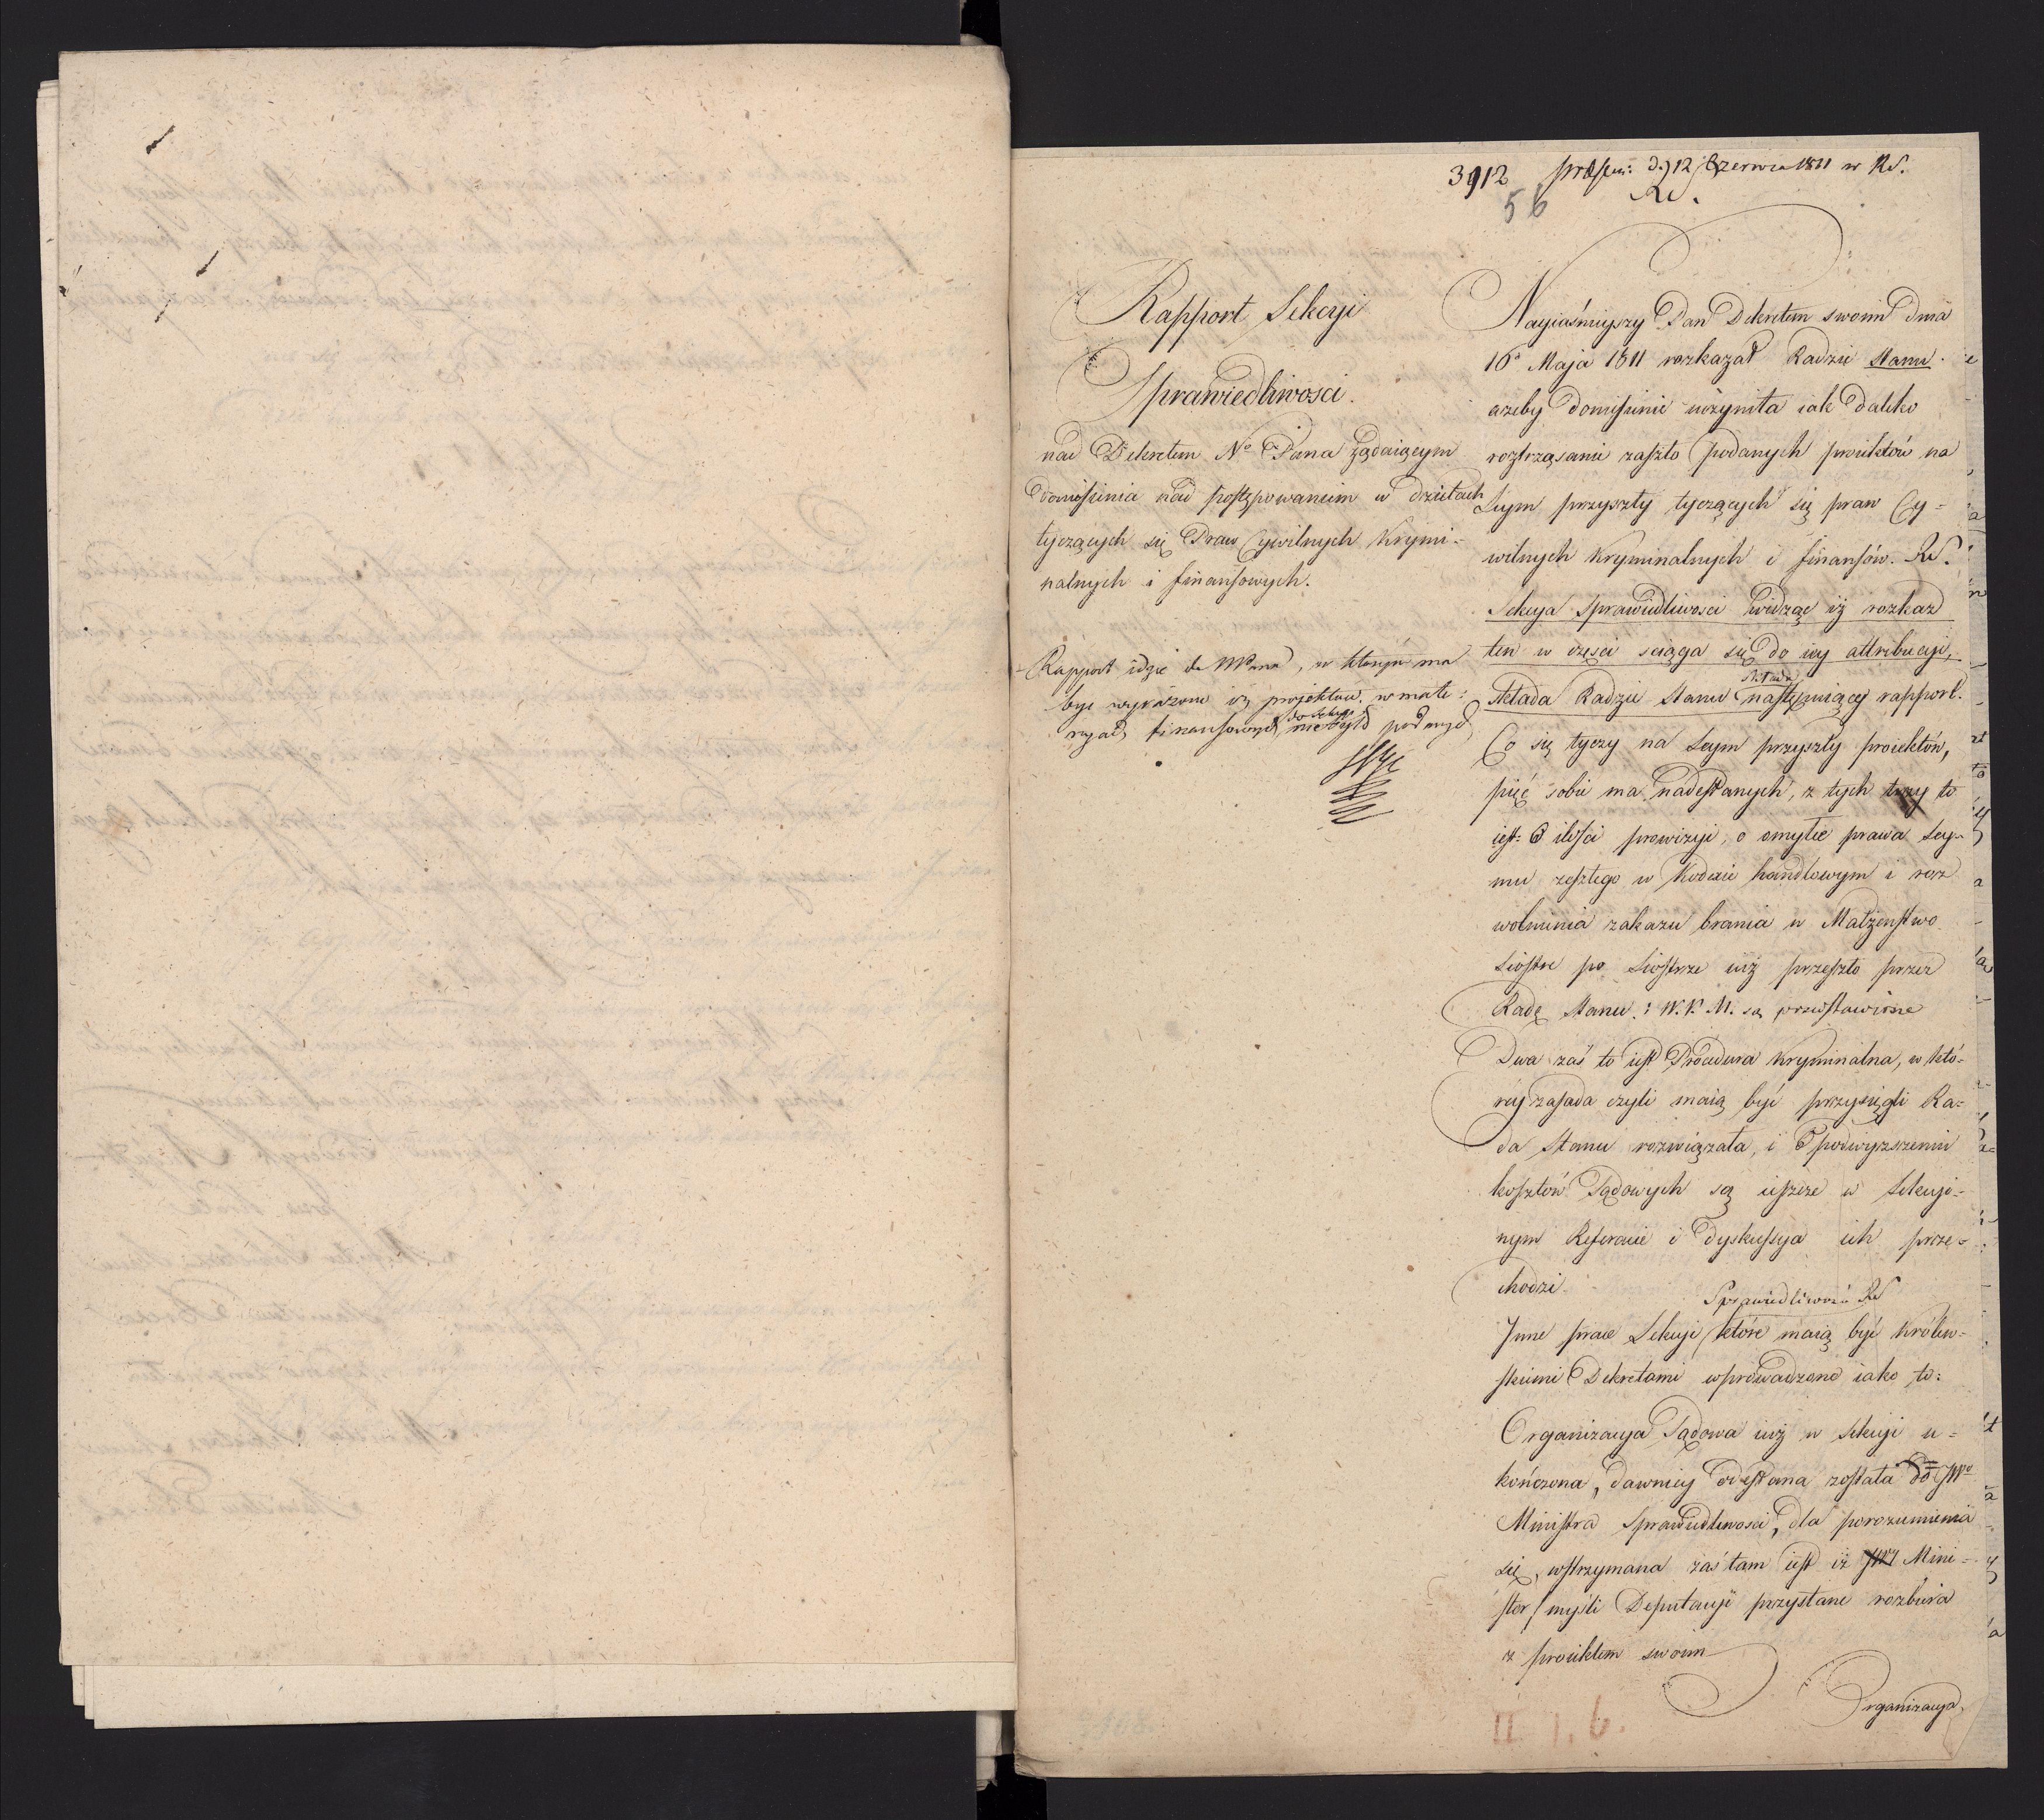 3912 præsen: d. 12 Czerwca 1811 w RS.
56
RS.
Rapport Sekcyi
Sprawiedliwosci.
nad Dekretem No Pana żądaiącym
doniesienia nad postępowaniem w dziełach
tyczących się Praw Cywilnych Krymi-
nalnych i finansowych.
Rapport idzie do NPana, w którym ma
byc wyrażono iż projektow w mate:
ryach finansowych do Sekcyi nie było podanych
Nayiaśnieyszy Pan Dekretem swoim dnia
16o Maja 1811 rozkazał Radzie Stanu
ażeby doniesienie uczyniła iak daleko
roztrząsanie zaszło podanych proiektów na
Seym przyszły tyczących się praw Cy=
wilnych Kryminalnych i finansów. RS.
Sekcya Sprawiedliwosci widząc iż rozkaz
ten w części sciąga się do iey attribucyi,
składa Radzie Stanu następuiący rapport.
Co się tyczy na Seym przyszły proiektów,
pięć sobie ma nadesłanych, z tych trzy to
iest: O ilości prowizyi, o omyłce prawa Sey-
mu zeszłego w Kodexie handlowym i roz
wolnienia zakazu brania w Małżenstwo
Siostre po Siostrze iuż przeszło przez
Radę Stanu: W. K. M. są przedstawione
Dwa zaś to iest Procedura Kryminalna, w któ-
réy zasada czyli maią być przysięgli Ra=
da Stanu rozwiązała, i O podwyzszeniu
kosztów Sądowych są ieszcze w Sekcyi-
nym Referacie i dyskussya ich prze=
chodzi.
Sprawiedliwości RS
Inne prace Sekcyi które maią być Królew-
skiemi Dekretami wprowadzone iako to:
Organizacya Sądowa iuż w Sekcyi u=
kończona, dawniey odesłana została do JWo
Ministra Sprawiedliwosci, dla porozumienia
się, wstrzymana zaś tam iest iż JW Mini=
ster myśli Deputacyi przysłane rozbiera
z proiektem swoim
Organizacya
II 1. 6.